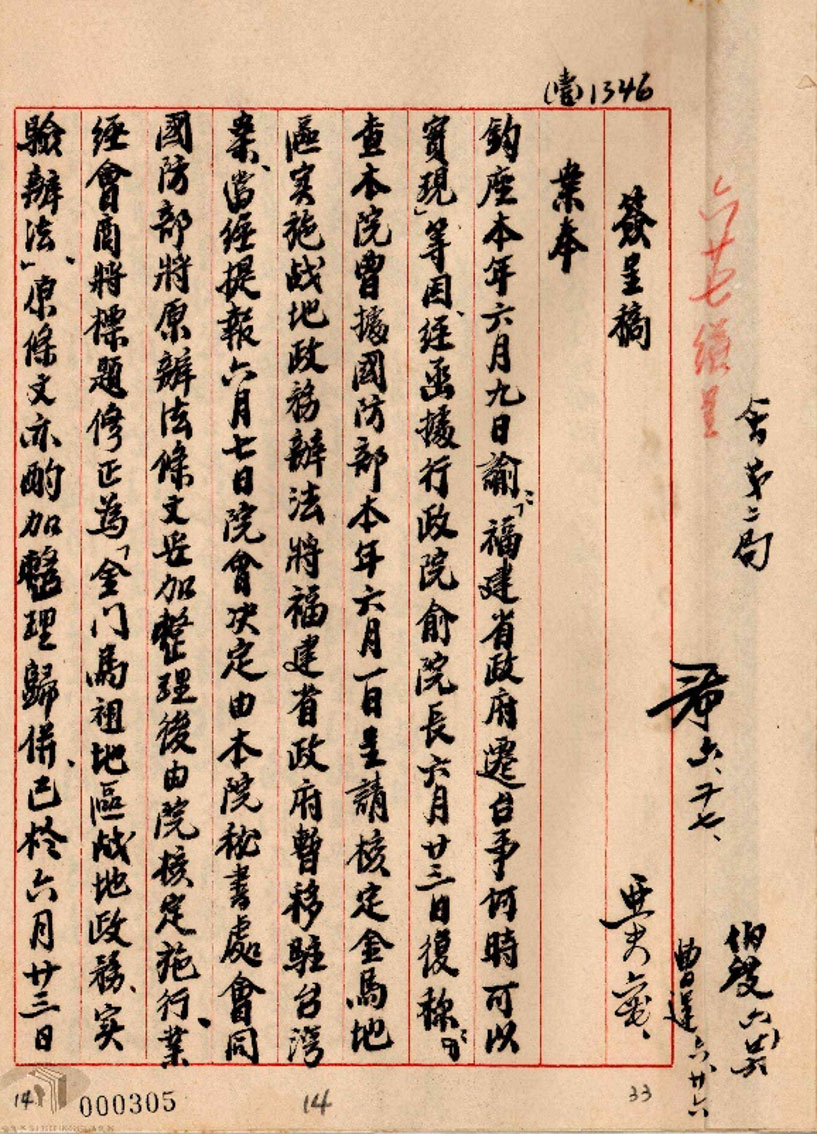 (壹)1346
六廿七繕呈
會第二局
六、廿七、
伯發六
曹 六廿六
簽呈稿
案奉
鈞座本年六月九日諭：「福建省政府遷台事何時可以
實現」等因、經函據行政院俞院長六月廿三日復稱：「
查本院曾據國防部本年六月一日呈請核定金馬地
區实施战地政務辦法將福建省政府暫移駐台灣
案、當經提報六月七日院會决定由本院秘書處會同
國防部將原辦法條文妥加整理後由院核定施行、業
經會商將標題修正為「金门馬祖地區战地政務、实
驗辦法、」原條文亦酌加整理歸併、已於六月廿三日
14
000305
14
33